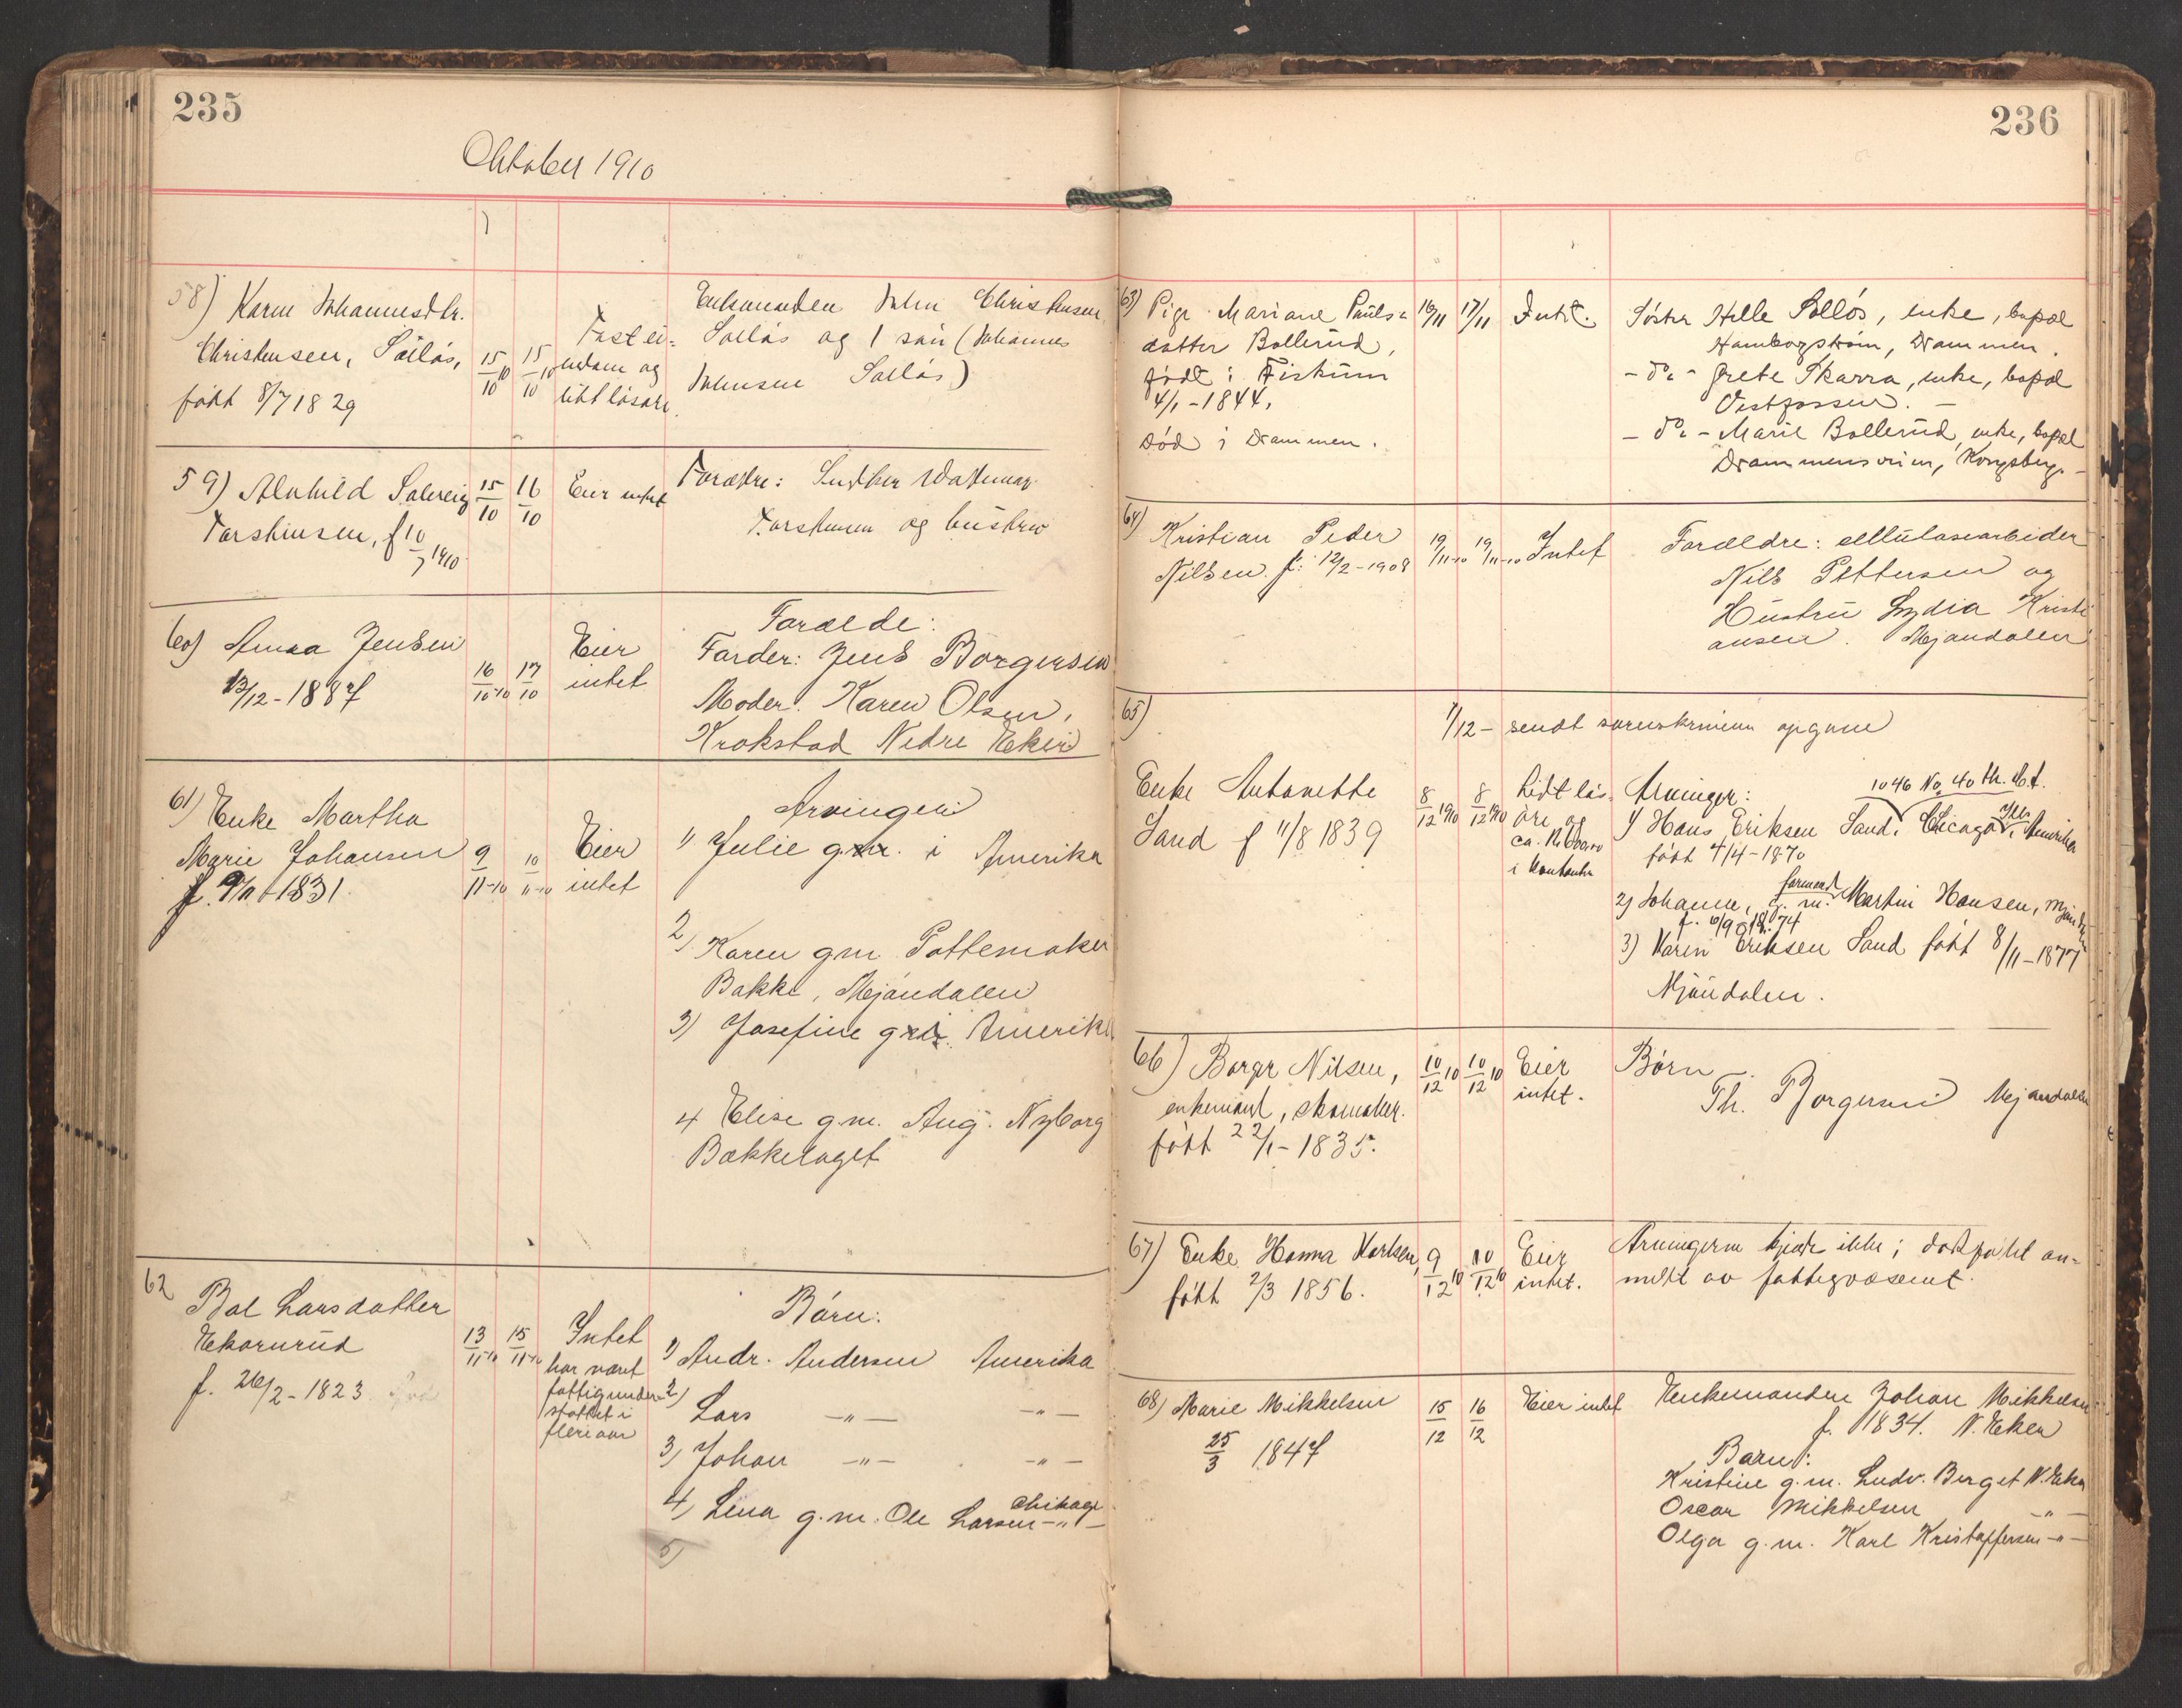 235
Oktober 1910
58) Karen Johannesdtr.
Christensen, Solløs,
født 8/7 1829
15/10 10
15/10 10
Fast ei=
endom og
lidt løsøre.
Enkemanden John Christensen
Solløs og 1 søn (Johannes
Johnsen Solløs)
59) Alvhild Solveig
Torstensen, f 10/7 1910.
15/10
16/10
Eier intet
Forældre:
Torstensen og hustru
60) Anna Jensen
13/12-1887
16/10-10
17/10
Eier
intet
Forælde:
Farder: Jens Borgersen
Moder. Karen Olsen,
Krokstad Nedre Eker
61) Enke Martha
Marie Johansen
f. 9/11-1831.
9/11-10
10/11-10
Eier
intet
Arvinger
1) Julie i Amerika
2) Karen gm Pottemaker
Bakke, Mjøndalen
3) Josefine Amerika
4 Elise g.m. Aug. Nyborg
Bækkelaget
62
Bol Larsdatter
Ekornrud
f. 26/2-1823.
13/11-10
15/11-10
Intet
har været
fattigunder=
støttet i
flere aar
Børn:
1) Andr. Andersen Amerika
2) Lars -"- -"-
3) Johan -"- -"-
4) Lina g.m. Ole Larsen Chikago -"-
5)
236
63) Pige Mariane Pauls=
datter Bollerud,
født i Fiskum
4/1-1844,
død i Drammen.
16/11
17/11
Intet.
Søster Helle Solløs, enke, bopæl
Hamborgstrøm, Drammen.
- do - Grete Skarra, enke, bopæl
Vestfossen. -
- do - Marie Bollerud, enke, bopæl
Drammensveien, Kongsberg. -
64)
Kristian Peder
Nilsen. f: 12/2-1908
19/11-10
19/11-10
Intet
Forældre: cellulosearbeider
Nils Pettersen og
Hustru Lydia Kristi
ansen. Mjøndalen
65)
1/12 - sendt sorenskriveren opgave
Enke Antonette
Sand f 11/8 1839
8/12 1910
8/12 1910
Lidt løs
øre og
i kontanter
Arvinger:
1046 No. 40 th. St.
1) Hans Eriksen Sand, Chicago Ill. Amerika
født 4/4-1870
2) Johanne, g. m. formand Martin Hansen, Mjøndalen
f. 6/9 1874
3) Karen Eriksen Sand født 8/11-1877
Mjøndalen.
66) Borger Nilsen,
enkemand, skomaker.
født 22/1-1835.
10/12 10
10/12 10
Eier
intet.
Børn
Th. Borgersen Mjøndalen
67) Enke Hanna Karlsen,
født 2/3 1856.
9/12 10
10/12 10
Eier
intet.
Arvingerne kjendes ikke; dødsfaldet an=
meldt av fattigvæsenet.
68) Marie Mikkelsen
25/3 1847
15/12
16/12
Eier intet
Enkemanden Johan Mikkelsen
f. 1834. N. Eker
Barn:
Kristine g.m. Ludv. Berget N. Eker
Oscar Mikkelsen -"-
Olga g.m. Karl Kristoffersen -"-